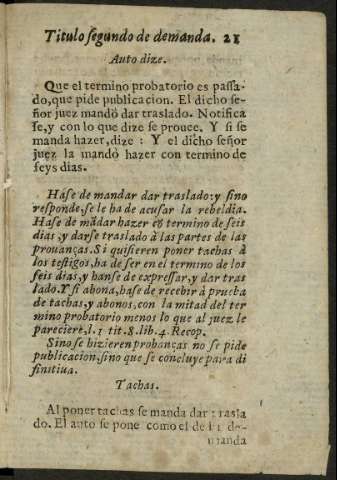 Titulo segundo de demanda. 21
Auto dize.
Que el termino probatorio es passa-
do, que pide publicacion. El dicho se-
ñor juez mandò dar traslado. Notifica
se, y con lo que dize se prouee. Y si se
manda hazer, dize : Y el dicho señor
juez la mandò hazer con termino de
seys dias.
Hase de mandar dar traslado: y sino
responde, se le ha de acusar la rebeldia.
Hase de mãdar hazer cõ termino de seis
dias, y darse traslado à las partes de las
prouanças. Si quisieren poner tachas à
los testigos, ha de ser en el termino de los
seis dias, y hanse de expressar, y dar tras
lado. Y si abona, hase de recebir à prueba
de tachas, y abonos, con la mitad del ter
mino probatorio menos lo que al juez le
pareciere, l. 1 tit. 8. lib. 4. Recop.
Sino se hizieren probanças no se pide
publicacion, sino que se concluye para di
finitiua.
Tachas.
Al poner tachas se manda dar trasla
do. El auto se pone como el de la de-
manda